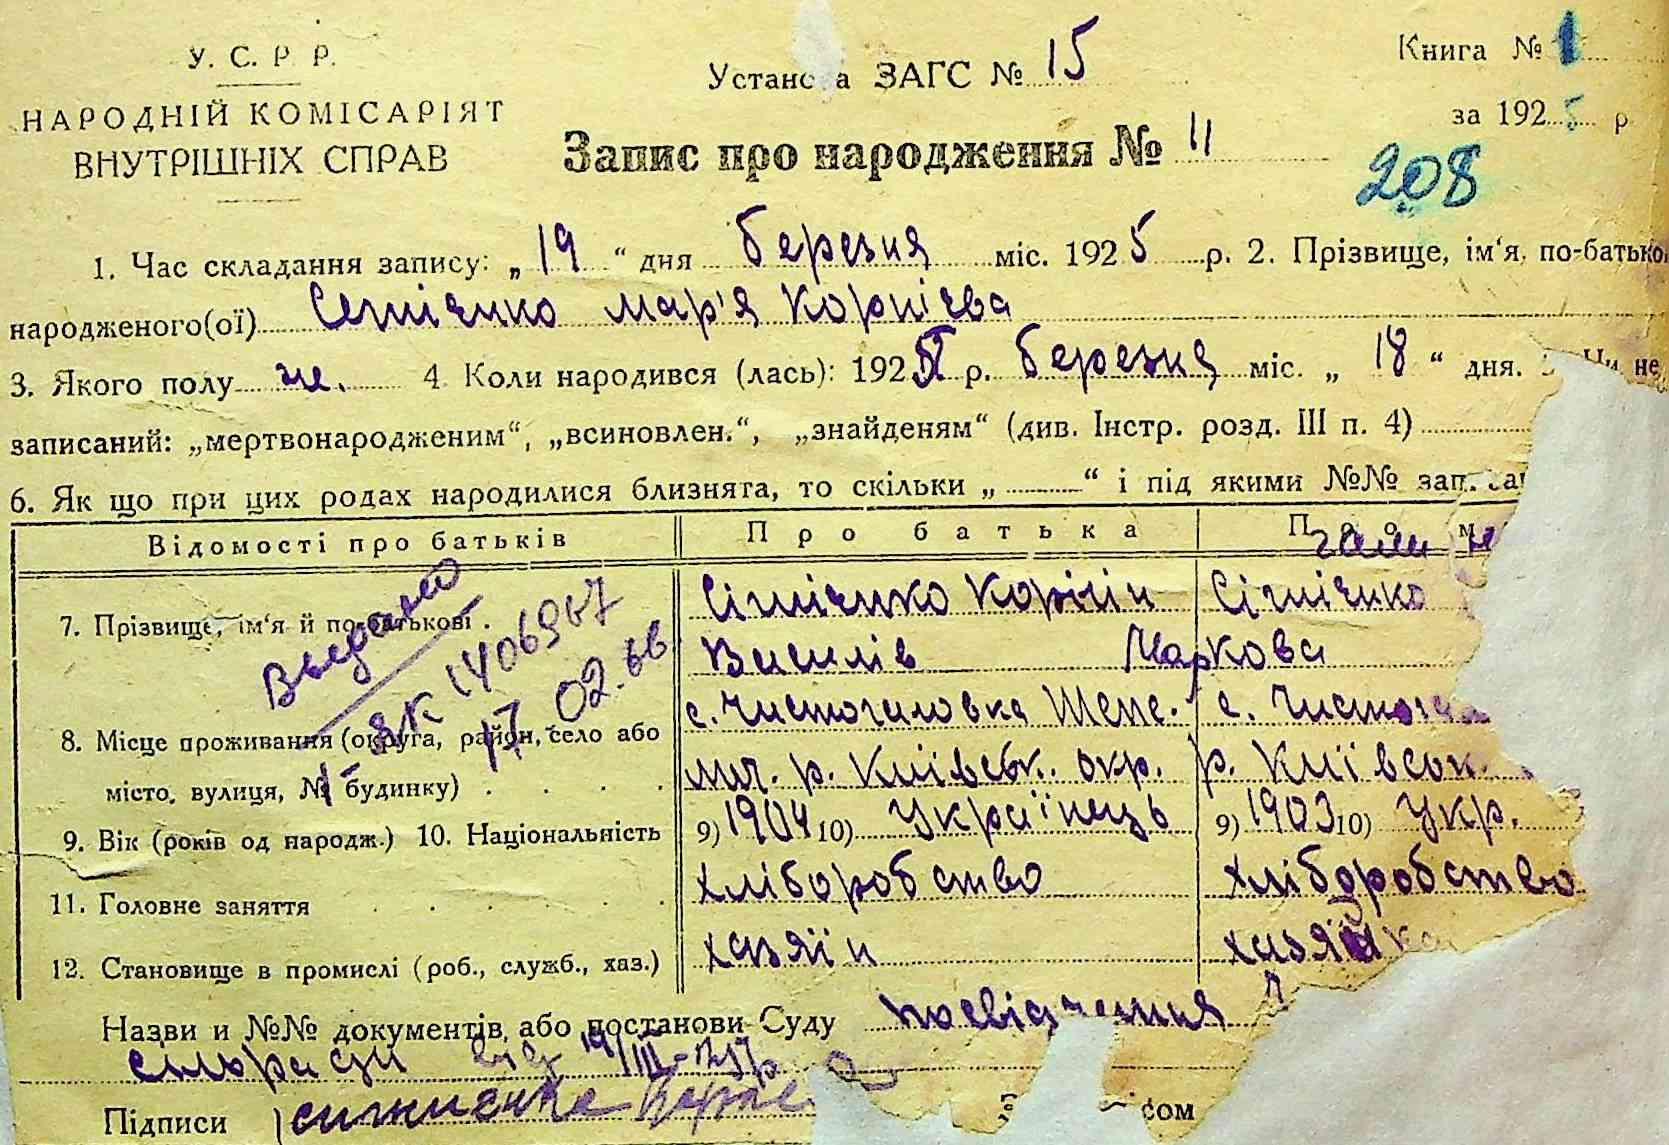 У. С. Р. Р.
НАРОДНІЙ КОМІСАРІЯТ
ВНУТРІШНІХ СПРАВ
Установа ЗАГС № 15
Запис про народження № 11
Книга № 1
за 1925 р
208
1. Час складання запису: „19“ дня березня міс. 1925 р. 2. Прізвище, ім‘я, по-батько
народженого(ої) Мар'я Корнієва
3. Якого полу ж. 4 Коли народився (лась): 1925 р. березня міс. „18“ дня. Чи не
записаний: „мертвонародженим“, „всиновлен.“, „знайденям“ (див. Інстр. розд. III п. 4)
6. Як що при цих родах народилися близнята, то скільки „ “ і під якими №№ зап.
Відомості про батьків Про батька Про м
7. Прізвище, ім‘я й по-батькові . Сігнієнко Корній Сігнієнко
Василів Маркова
Выдано
ЯК 1406967
17 02.66
8. Місце проживання (округа, район, село або с. Чистогаловка Шепе- с. Чистога
місто, вулиця, № будинку) . . . . лич. р. Київськ. окр. р. Київськ.
9. Вік (років од народж.) 10. Національність 9) 1904 10) Українець 9) 1903 10) Укр.
11. Головне заняття . . . . . хліборобство хліборобство
12. Становище в промислі (роб., служб., хаз.) хазяїн хазяйка
Назви и №№ документів, або постанови Суду посвідчення
сільради від 19/III-25р
Підписи
сом